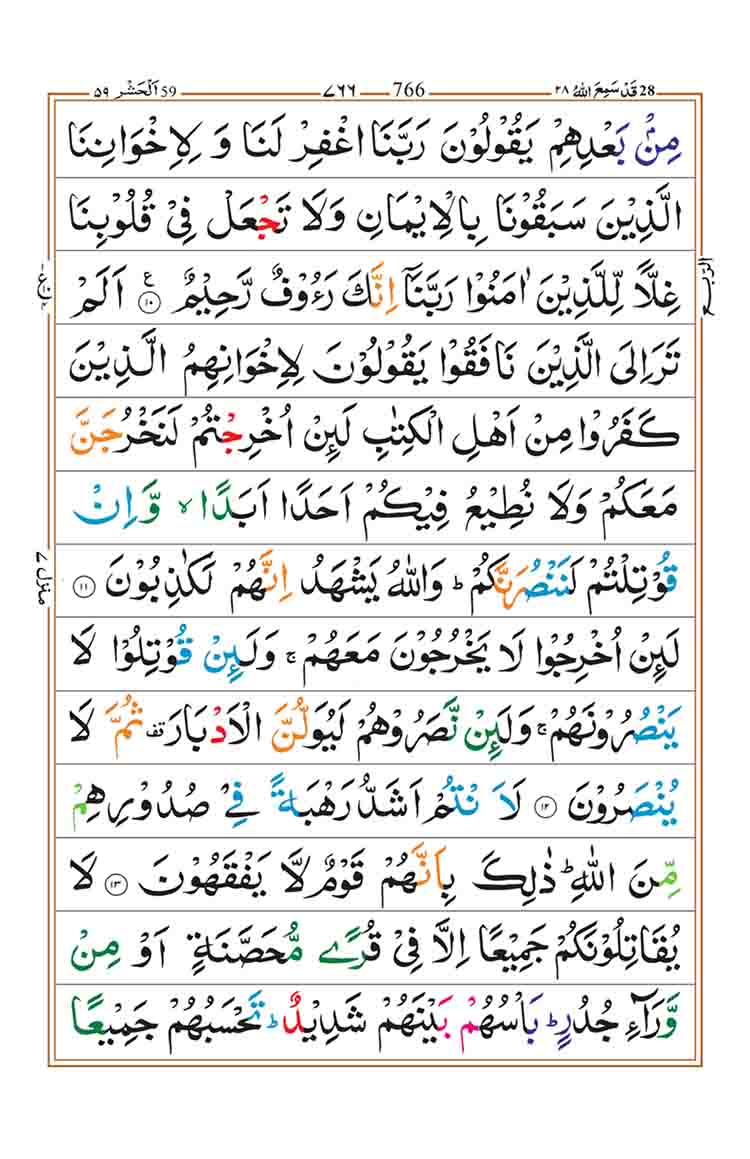 28 قَدۡ سَمِعَ اللّٰهُ ۲۸ 766 ٧٦٦ 59 اَلۡحَشۡر ۵۹
مِنۡۢ بَعۡدِهِمۡ يَقُوۡلُوۡنَ رَبَّنَا اغۡفِرۡ لَنَا وَ لِاِخۡوَانِنَا
الَّذِيۡنَ سَبَقُوۡنَا بِالۡاِيۡمَانِ وَلَا تَجۡعَلۡ فِىۡ قُلُوۡبِنَا
غِلًّا لِّلَّذِيۡنَ اٰمَنُوۡا رَبَّنَاۤ اِنَّكَ رَءُوۡفٌ رَّحِيۡمٌ ۱۰ ع اَلَمۡ
تَرَ اِلَى الَّذِيۡنَ نَافَقُوۡا يَقُوۡلُوۡنَ لِاِخۡوَانِهِمُ الَّذِيۡنَ
كَفَرُوۡا مِنۡ اَهۡلِ الۡكِتٰبِ لَئِنۡ اُخۡرِجۡتُمۡ لَنَخۡرُجَنَّ
مَعَكُمۡ وَلَا نُطِيۡعُ فِيۡكُمۡ اَحَدًا اَبَدًا ۙ وَّاِنۡ
قُوۡتِلۡتُمۡ لَنَنۡصُرَنَّكُمۡ ؕ وَاللّٰهُ يَشۡهَدُ اِنَّهُمۡ لَكٰذِبُوۡنَ ۱۱
لَئِنۡ اُخۡرِجُوۡا لَا يَخۡرُجُوۡنَ مَعَهُمۡ ۚ وَلَئِنۡ قُوۡتِلُوۡا لَا
يَنۡصُرُوۡنَهُمۡ ۚ وَلَئِنۡ نَّصَرُوۡهُمۡ لَيُوَلُّنَّ الۡاَدۡبَارَ قف ثُمَّ لَا
يُنۡصَرُوۡنَ ۱۲ لَاَنۡتُمۡ اَشَدُّ رَهۡبَةً فِىۡ صُدُوۡرِهِمۡ
مِّنَ اللّٰهِ ؕ ذٰلِكَ بِاَنَّهُمۡ قَوۡمٌ لَّا يَفۡقَهُوۡنَ ۱۳ لَا
يُقَاتِلُوۡنَكُمۡ جَمِيۡعًا اِلَّا فِىۡ قُرًى مُّحَصَّنَةٍ اَوۡ مِنۡ
وَّرَآءِ جُدُرٍ ؕ بَاۡسُهُمۡ بَيۡنَهُمۡ شَدِيۡدٌ ؕ تَحۡسَبُهُمۡ جَمِيۡعًا
الرّبع
منزل ٧